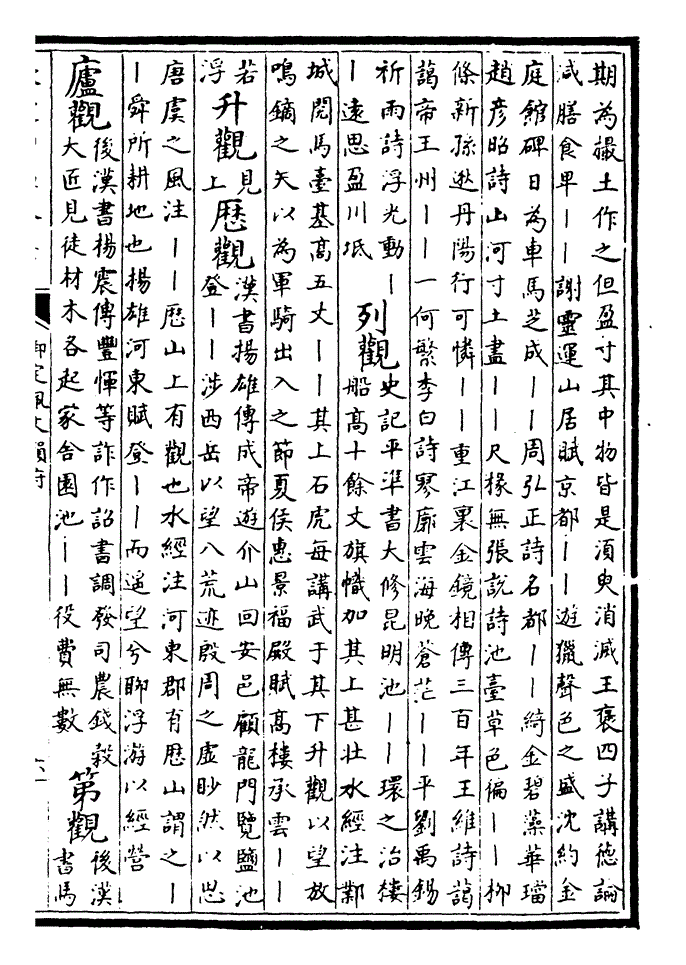 期為撮土作之但盈寸其中物皆是湏臾消滅王襃四子講徳論
減膳食卑丨丨謝靈運山居賦京都丨丨遊獵聲色之盛沈約金
庭館碑日為車馬芝成丨丨周弘正詩名都丨丨綺金碧藻華璫
趙彦昭詩山河寸土盡丨丨尺椽無張說詩池臺草色徧丨丨栁
條新孫逖丹陽行可憐丨丨重江裏金鏡相傳三百年王維詩藹
藹帝王州丨丨一何繁李白詩寥廓雲海晚蒼茫丨丨平劉禹錫
祈雨詩浮光動丨
丨遠思盈川坻
列觀
史記平準書大修昆明池丨丨環之治樓
船高十餘丈旗幟加其上甚壮水經注鄴
城閱馬臺基高五丈丨丨其上石虎每講武于其下升觀以望放
鳴鏑之矢以為軍騎出入之節夏侯惠景福殿賦高樓承雲丨丨
若
浮
升觀
見
上
歴觀
漢書揚雄傳成帝遊介山回安邑顧龍門覽鹽池
登丨丨涉西岳以望八荒迹殷周之虚眇然以思
唐虞之風注丨丨歴山上有觀也水經注河東郡有歴山謂之丨
丨舜所耕地也揚雄河東賦登丨丨而遥望兮聊浮游以經營
廬觀
後漢書楊震傳豐惲等詐作詔書調發司農錢穀
大匠見徒材木各起家舎園池丨丨役費無數
第觀
後漢
書馬
御定佩文韻府